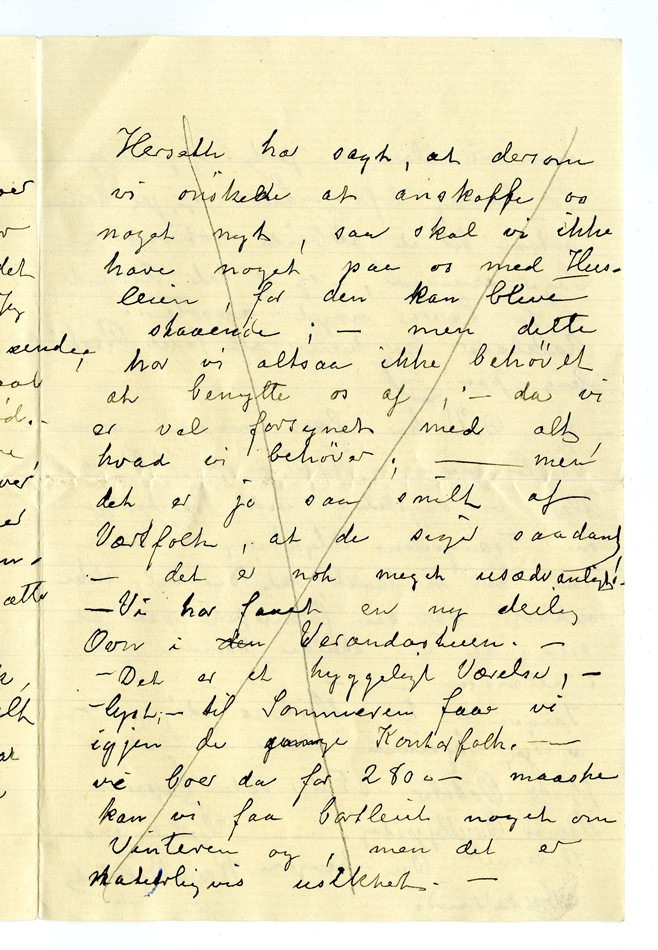 Herseth har sagt, at dersom
vi önskede at anskaffe os
noget nyt, saa skal vi ikke
have noget paa os med Hus-
leien, for den kan blive
staaende; — men dette
har vi altsaa ikke behövet
at benytte os af; — da vi
er vel forsynet med alt,
hvad vi behöver; — men
det er jo saa snilt af
Værtfolk, at de siger saadant,
— det er nok meget usædvanligt!
— Vi har faaet en ny deilig
Ovn i den Verandastuen. —
— Det er et hyggeligt Værelse, —
lyst; — til Sommeren faar vi
igjen de Kontorfolk. —
vi boer da for 280 — maaske
kan vi faa bortleiet noget om
Vinteren og, men det er
naturligvis usikkert. —
det
Jeg
sende
ver,
er